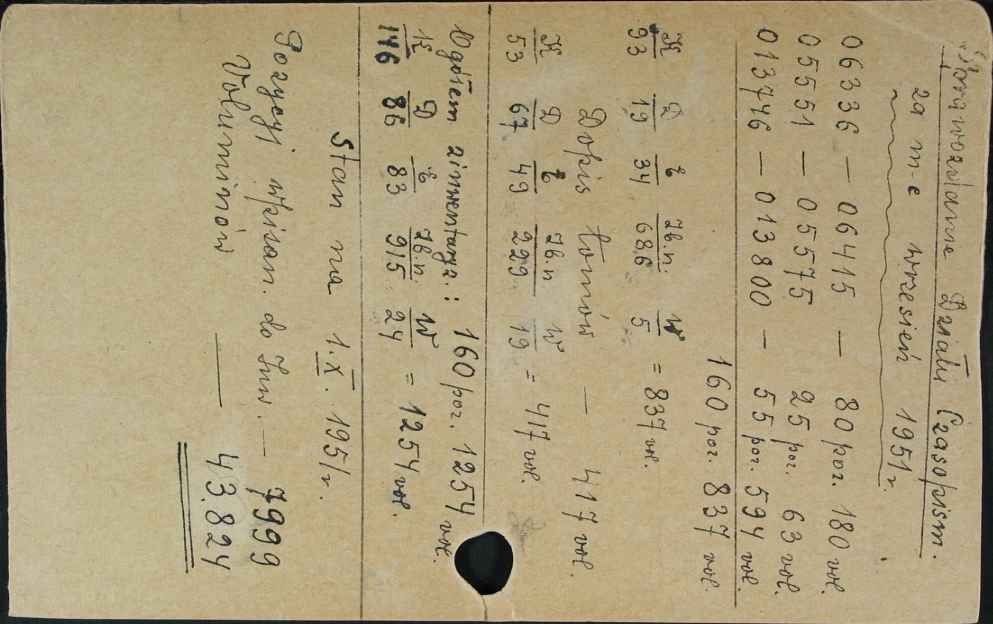 Sprawozdanie Działu Czasopism.
za m-c wrzesień 1951 r.
06336 — 06415 — 80 poz. 180 vol.
05551 — 05575 25 poz. 63 vol.
013746 — 013800 — 55 poz. 594 vol.
160 poz. 837 vol.
K D Ł Zb.n. W
93 19 34 686 5 = 837 vol.
Dopis tomów — 417 vol.
K D Ł Zb.n W
53 67 49 229 19 = 417 vol.
Ogółem zinwentaryz.: 160 poz. 1254 vol.
K D Ł Zb.n. W
146 86 83 915 24 = 1254 vol.
Stan na 1.X.1951 r.
Pozycji wpisan. do Inw. — 7999
Voluminów — 43.824